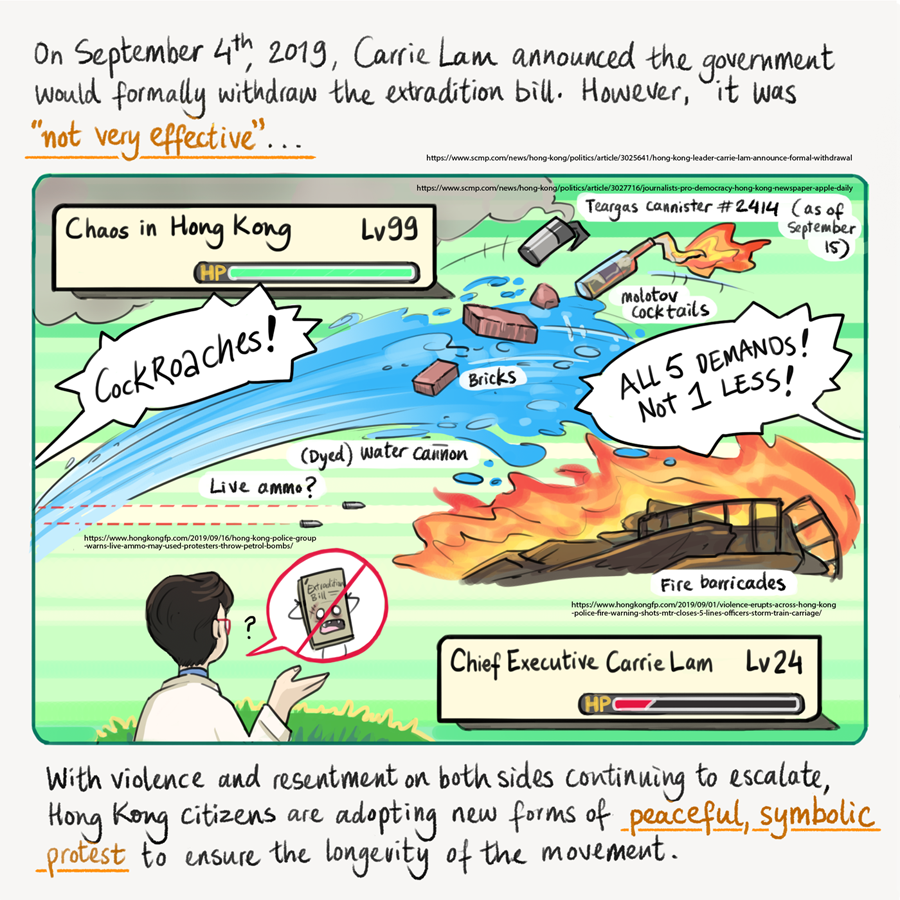 On September 4th, 2019, Carrie Lam announced the government
would formally withdraw the extradition bill. However, it was
"not very effective"...
https://www.scmp.com/news/hong-kong/politics/article/3025641/hong-kong-leader-carrie-lam-announce-formal-withdrawal
https://www.scmp.com/news/hong-kong/politics/article/3027716/journalists-pro-democracy-hong-kong-newspaper-apple-daily
Teargas cannister #2414 (as of
September
15)
Chaos in Hong Kong Lv99
HP
molotov
cocktails
CockRoaches!
ALL 5 DEMANDS!
Not 1 LESS!
Bricks
(Dyed) Water Cannon
Live ammo?
https://www.hongkongfp.com/2019/09/16/hong-kong-police-group
-warns-live-ammo-may-used-protesters-throw-petrol-bombs/
Fire barricades
https://www.hongkongfp.com/2019/09/01/violence-erupts-across-hong-kong
-police-fire-warning-shots-mtr-closes-5-lines-officers-storm-train-carriage/
Extradition
Bill
?
Chief Executive Carrie Lam Lv24
HP
With violence and resentment on both sides continuing to escalate,
Hong Kong citizens are adopting new forms of peaceful, symbolic
protest to ensure the longevity of the movement.